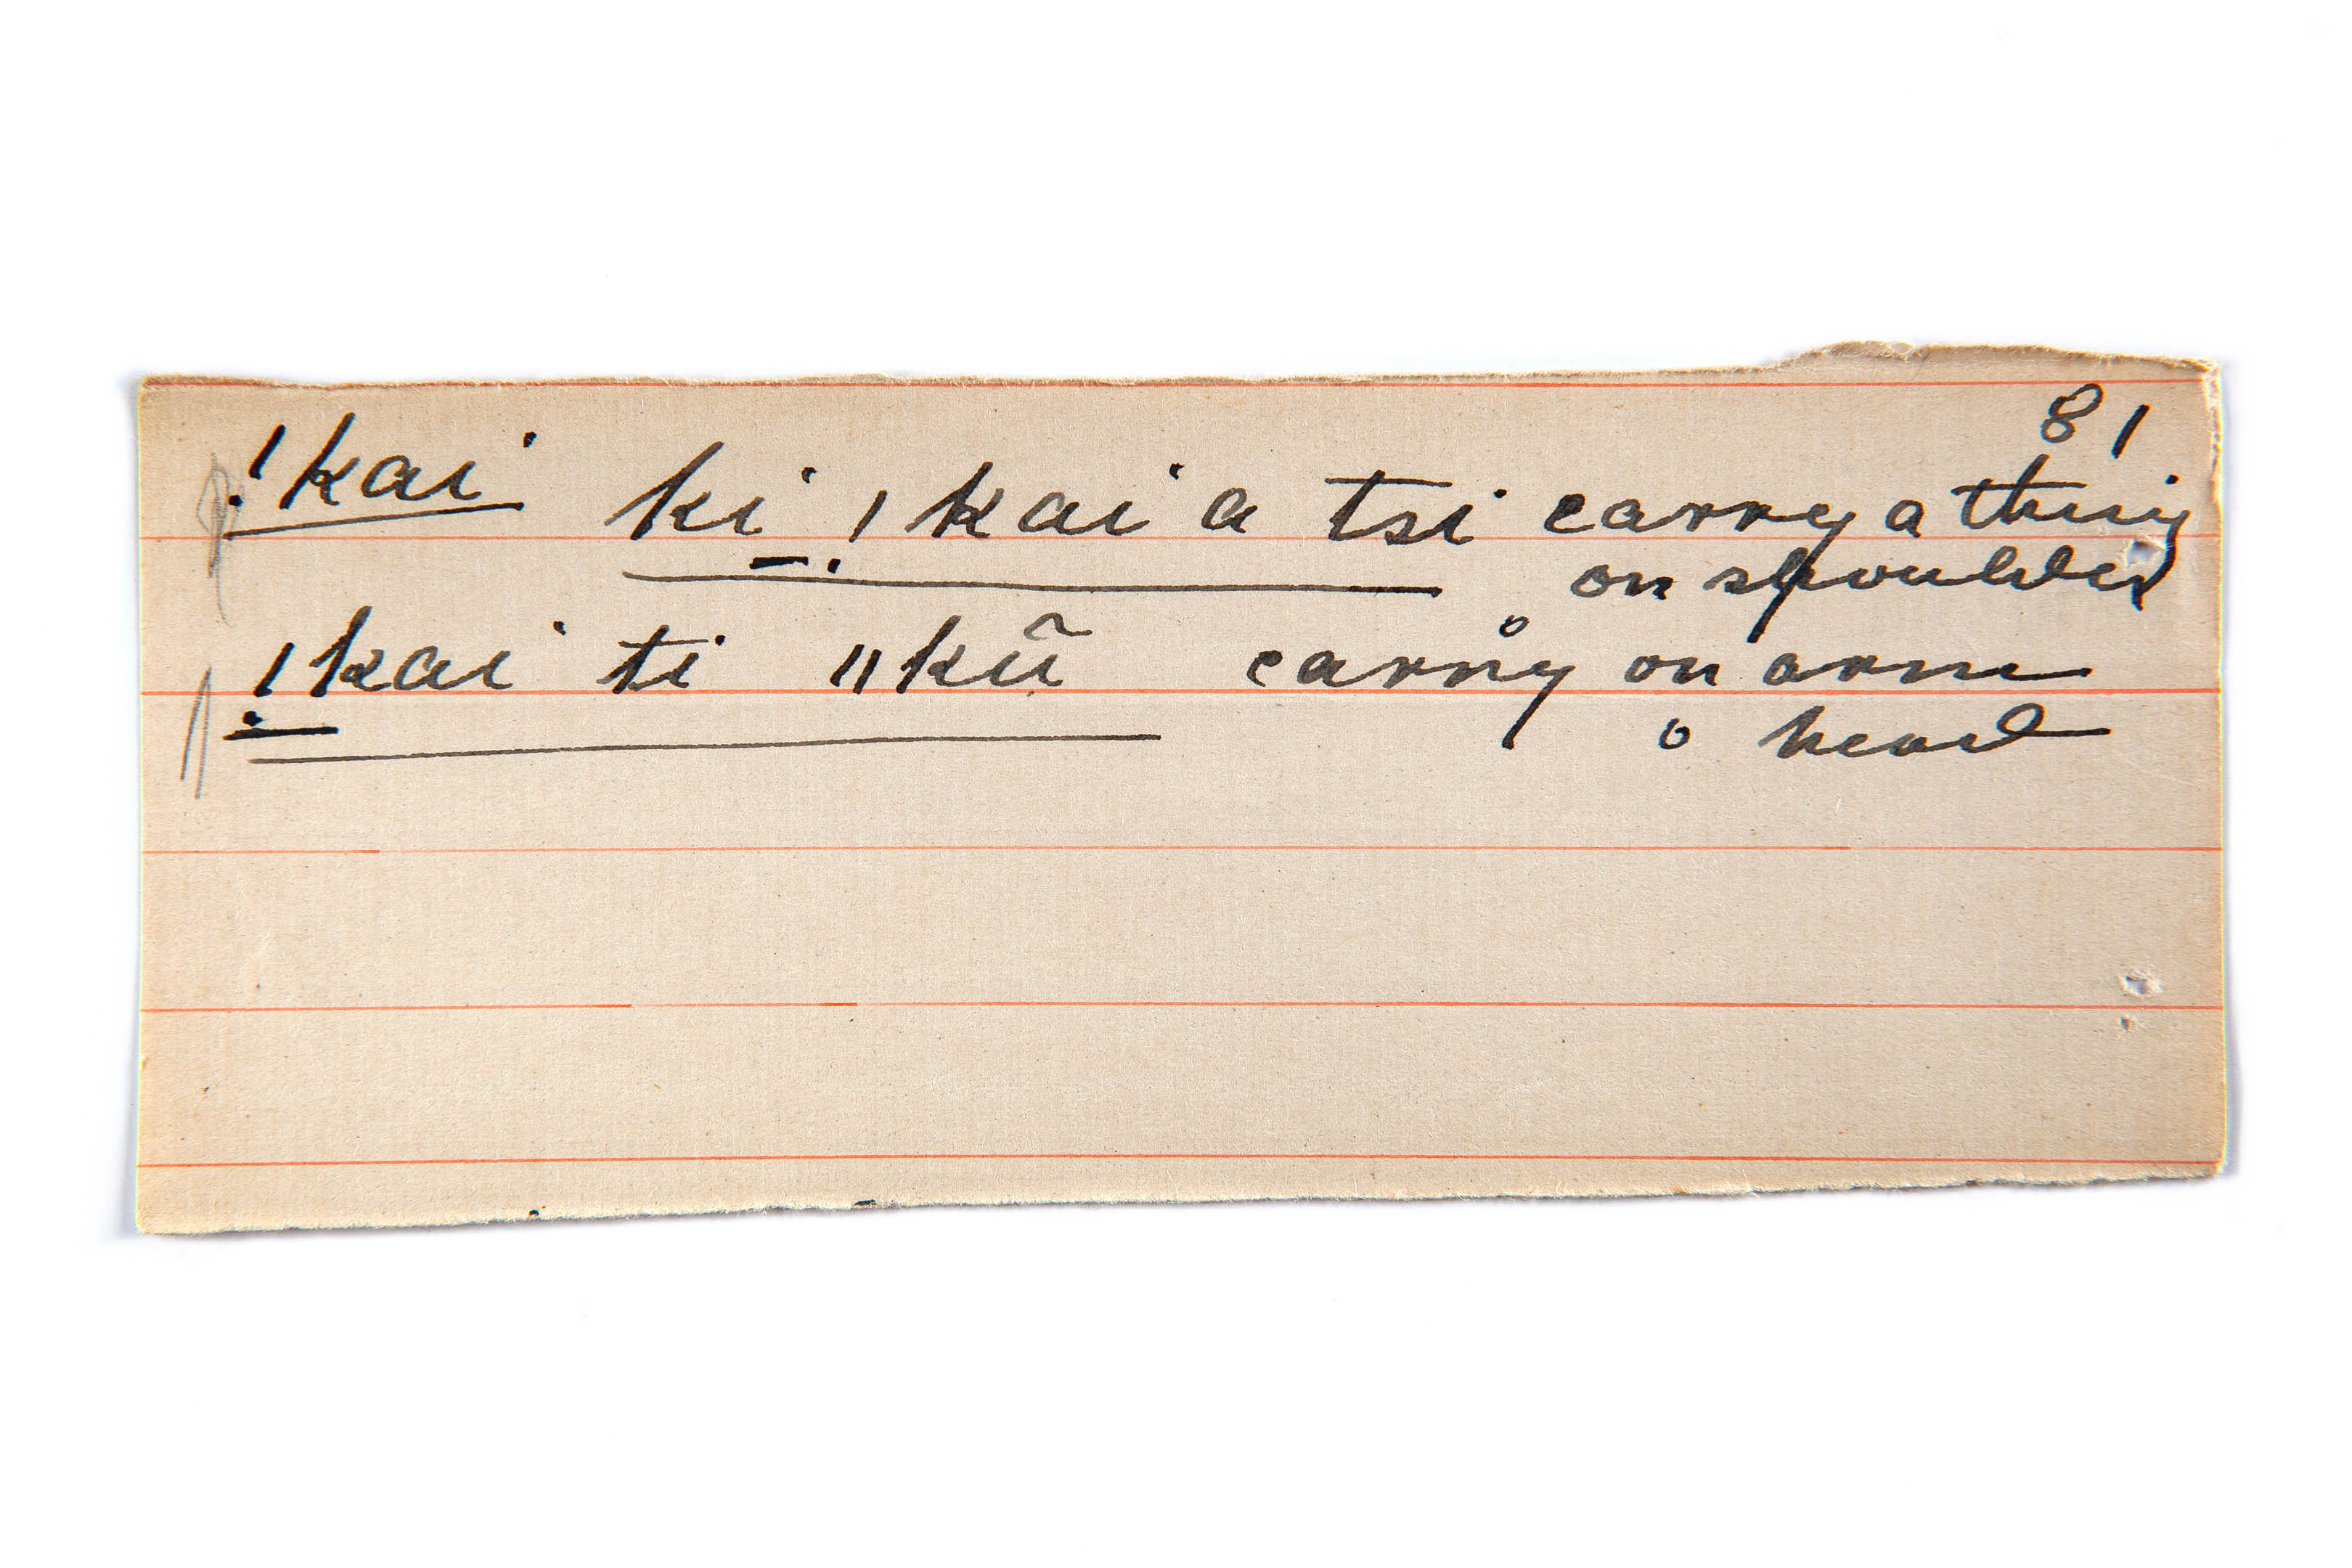 81
!kai ki !kai a tsi carry a thing
on shoulder
!kai ti ǁkũ carry on arm
o head